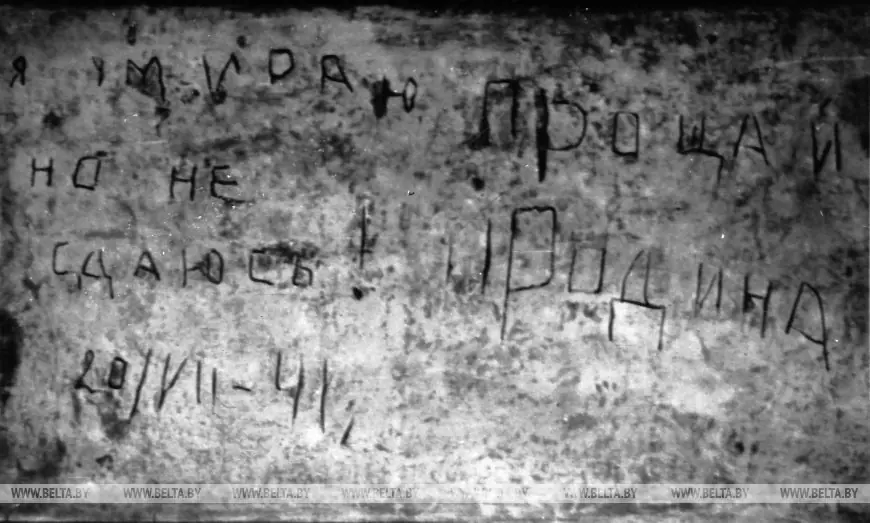 Я УМИРАЮ
НО НЕ
СДАЮСЬ!
ПРОЩАЙ
РОДИНА
20/VII-41
WWW.BELTA.BY WWW.BELTA.BY WWW.BELTA.BY WWW.BELTA.BY WWW.BELTA.BY WWW.BELTA.BY WWW.BELTA.BY WWW.BELTA.BY